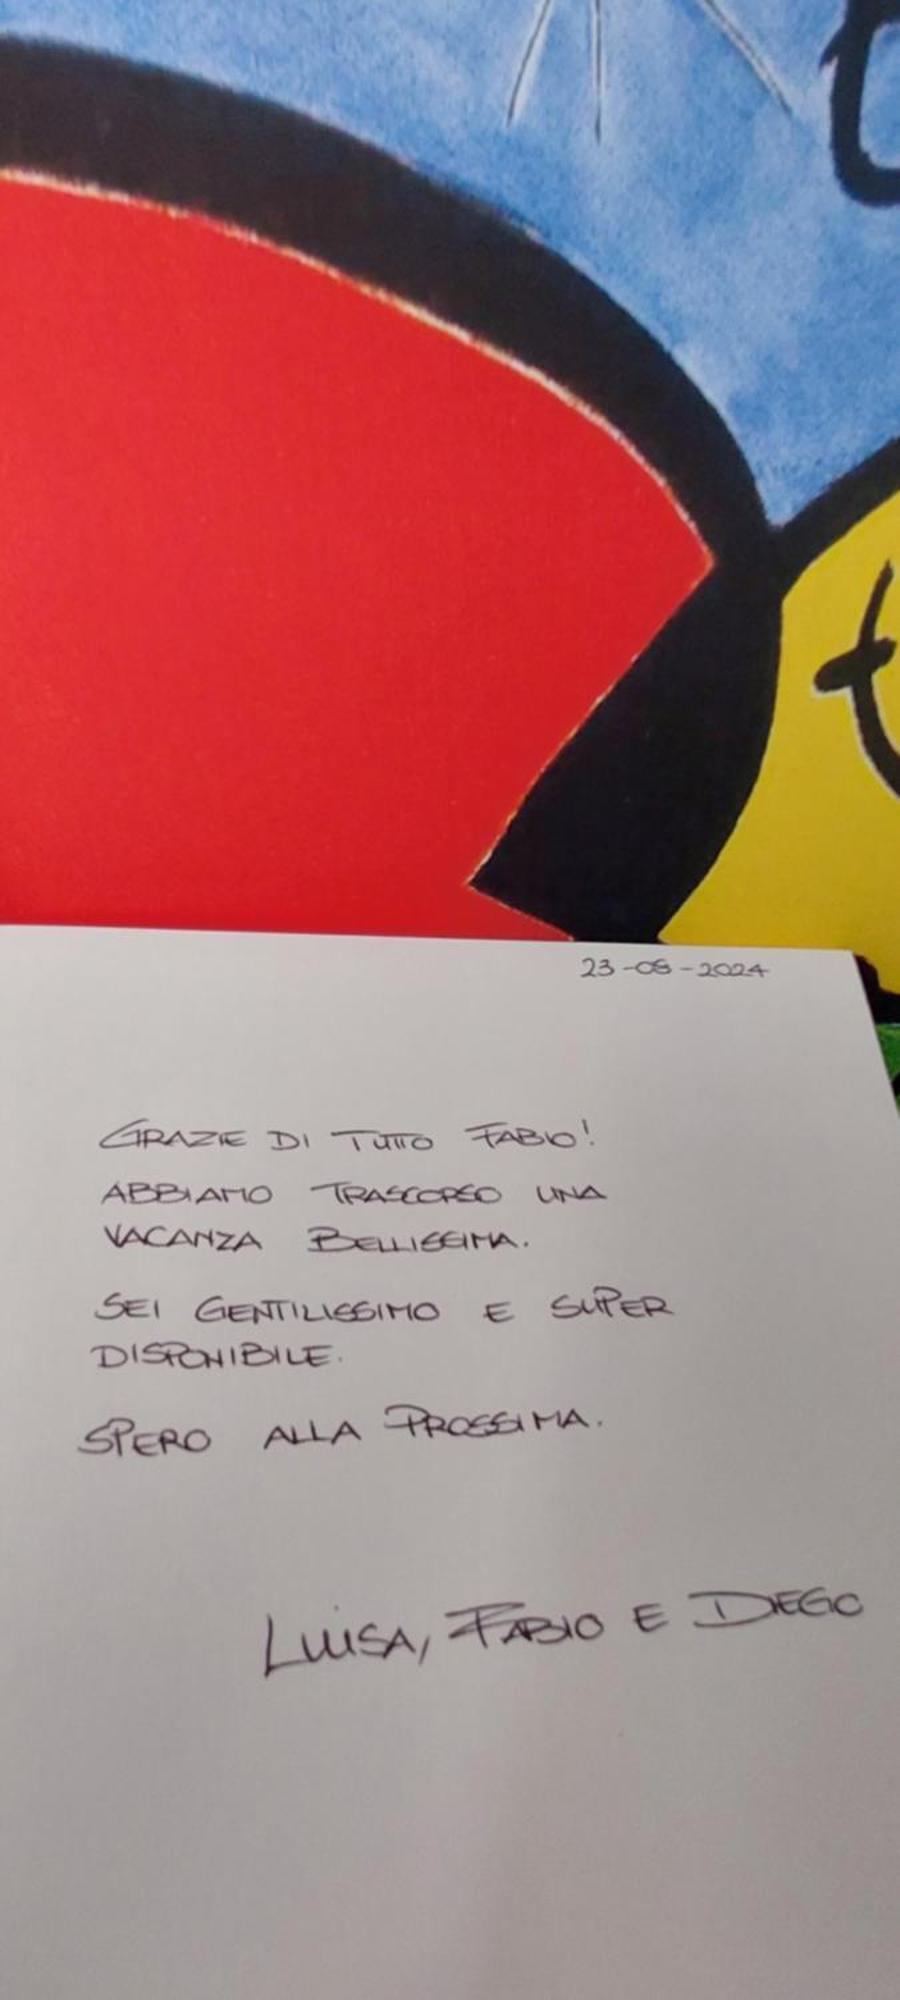 23-08-2024
GRAZIE DI TUTTO FABIO!
ABBIAMO TRASCORSO UNA
VACANZA BELLISSIMA.
SEI GENTILISSIMO E SUPER
DISPONIBILE.
SPERO ALLA PROSSIMA.
LUISA, FABIO E DIEGO